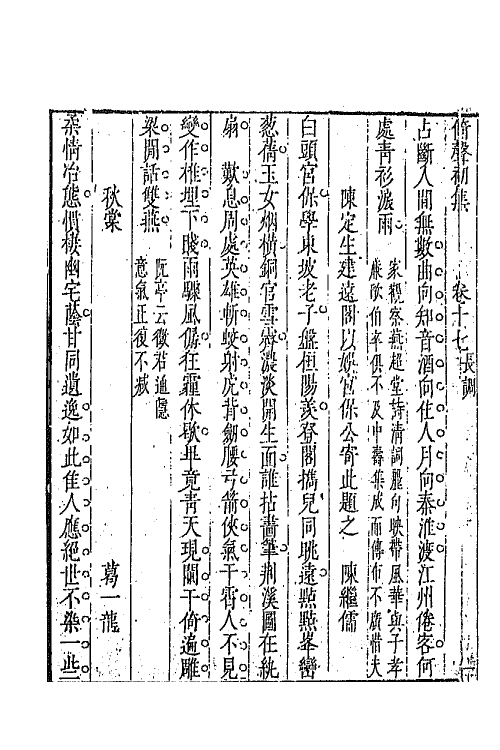 倚聲初集　卷十七長調
占斷人間無數曲向知音酒向佳人月向秦淮渡江州倦客何
處青衫濺雨
家觀察燕超堂詩清詞麗句映帶風華與子孝
嚴歐伯辛俱不及中壽集成而傳布不廣惜夫
陳定生建遠閣以娛宮保公寄此題之　陳繼儒
白頭宮保學東坡老子盤但陽羨登閣攜兒同眺遠點點峯巒
葱蒨玉女烟橫銅官雪霽濃淡開生面誰拈畵筆荆溪圖在紈
扇　歎息周處英雄斬蛟射虎背劒腰弓箭俠氣干霄人不見
變作椎埋下賤雨驟風僝狂霾休歇畢竟青天現闌干倚遍雕
梁閒話雙燕
阮亭云徵君通隱
意氣正復不減
秋棠　葛一龍
柔情冶態慣棲幽宅蔭甘同遺逸如此佳人應絕世不染一些